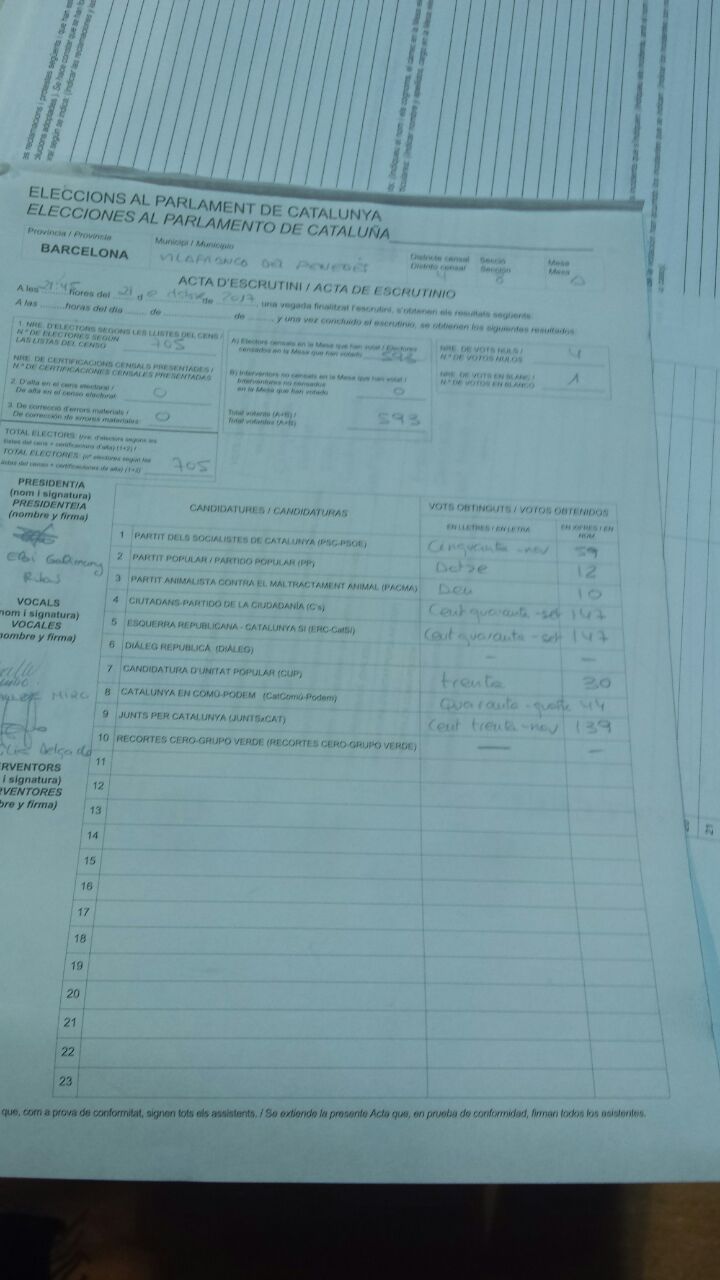 ELECCIONS AL PARLAMENT DE CATALUNYA
ELECCIONES AL PARLAMENTO DE CATALUÑA
Provincia / Provincia
BARCELONA
Municipi / Municipio
VILAFRANCA DEL PENEDÈS
Districte censal
Distrito censal
4
Secció
Sección
8
Mesa
Mesa
ACTA D'ESCRUTINI / ACTA DE ESCRUTINIO
A les 21:45 hores del 21 d de 2017, una vegada finalitzat l'escrutini, s'obtenen els resultats següents:
A las horas del día de de y una vez concluido el escrutinio, se obtienen los siguientes resultados:
1. NRE. D'ELECTORS SEGONS LES LLISTES DEL CENS /
N.º DE ELECTORES SEGÚN
LAS LISTAS DEL CENSO 705
NRE. DE CERTIFICACIONS CENSALS PRESENTADES /
N.º DE CERTIFICACIONES CENSALES PRESENTADAS
2. D'alta en el cens electoral /
De alta en el censo electoral: 0
3. De correcció d'errors materials /
De corrección de errores materiales: 0
TOTAL ELECTORS: (nre. d'electors segons les
llistes del cens + certificacions d'alta) (1+2) /
TOTAL ELECTORES: (nº electores según las
listas del censo + certificaciones de alta) (1+2) 705
A) Electors censats en la Mesa que han votat / Electores
censados en la Mesa que han votado 593
B) Interventors no censats en la Mesa que han votat /
Interventores no censados
en la Mesa que han votado 0
Total votants (A+B) /
Total votantes (A+B) 593
NRE. DE VOTS NULS /
N.º DE VOTOS NULOS 4
NRE. DE VOTS EN BLANC /
N.º DE VOTOS EN BLANCO 1
PRESIDENT/A
(nom i signatura)
PRESIDENTE/A
(nombre y firma)
Ribas
VOCALS
nom i signatura)
VOCALES
nombre y firma)
Delgado
RVENTORS
i signatura)
RVENTORES
bre y firma)
CANDIDATURES / CANDIDATURAS
VOTS OBTINGUTS / VOTOS OBTENIDOS
EN LLETRES / EN LETRA
EN XIFRES / EN NÚM.
1 PARTIT DELS SOCIALISTES DE CATALUNYA (PSC-PSOE) Cinquanta-nou 59
2 PARTIT POPULAR / PARTIDO POPULAR (PP) Dotze 12
3 PARTIT ANIMALISTA CONTRA EL MALTRACTAMENT ANIMAL (PACMA) Deu 10
4 CIUTADANS-PARTIDO DE LA CIUDADANÍA (C's) Cent quaranta-set 147
5 ESQUERRA REPUBLICANA - CATALUNYA SÍ (ERC-CatSí) Cent quaranta-set 147
6 DIÀLEG REPUBLICÀ (DIÀLEG) — —
7 CANDIDATURA D'UNITAT POPULAR (CUP) trenta 30
8 CATALUNYA EN COMÚ-PODEM (CatComú-Podem) Quaranta-quatre 44
9 JUNTS PER CATALUNYA (JUNTSxCAT) Cent trenta-nou 139
10 RECORTES CERO-GRUPO VERDE (RECORTES CERO-GRUPO VERDE) — —
11
12
13
14
15
16
17
18
19
20
21
22
23
que, com a prova de conformitat, signen tots els assistents. / Se extiende la presente Acta que, en prueba de conformidad, firman todos los asistentes.